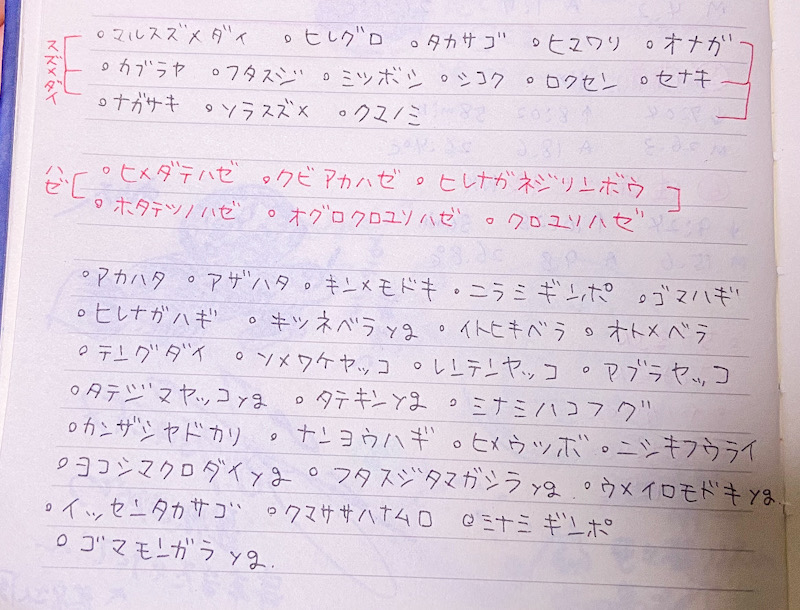 スズメダイ
○マルスズメダイ ○ヒレグロ ○タカサゴ ○ヒマワリ ○オナガ
○カブラヤ ○フタスジ ○ミツボシ ○シコク ○ロクセン ○セナキ
○ナガサキ ○ソラスズメ ○クマノミ
ハゼ
○ヒメダテハゼ ○クビアカハゼ ○ヒレナガネジリンボウ
○ホタテツノハゼ ○オグロクロユリハゼ ○クロユリハゼ
○アカハタ ○アザハタ ○キンメモドキ ○ニラミギンポ ○ゴマハギ
○ヒレナガハギ ○キツネベラyg ○イトヒキベラ ○オトメベラ
○テングダイ ○ソメワケヤッコ ○レンテンヤッコ ○アブラヤッコ
○タテジマヤッコyg ○タテキンyg ○ミナミハコフグ
○カンザシヤドカリ ○ナンヨウハギ ○ヒメウツボ ○ニシキフウライ
○ヨコシマクロダイyg ○フタスジタマガシラyg. ○ウメイロモドキyg.
○イッセンタカサゴ ○クマササハナムロ ○ミナミギンポ
○ゴマモンガラyg.